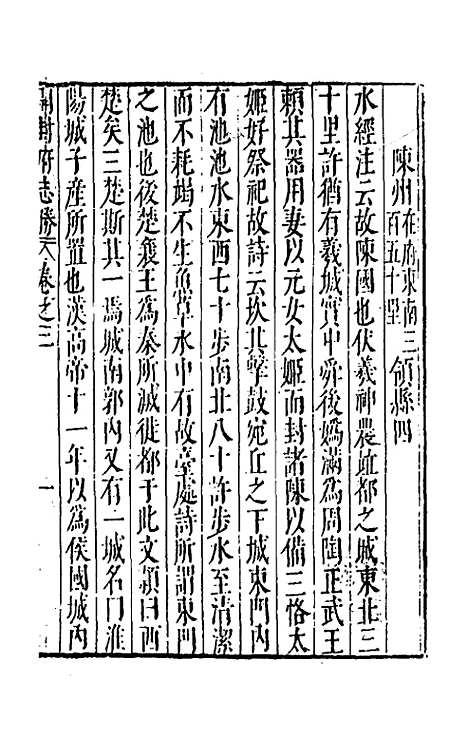 陳州在府東南三百五十里領縣四
水經注云故陳國也伏羲神農並都之城東北三
十里許猶有羲城實中舜後媯滿為周陶正武王
賴其器用妻以元女太姬而封諸陳以備三恪太
姬好祭祀故詩云坎其擊鼓宛丘之下城東門內
有池池水東西七十步南北八十許步水至清潔
而不耗竭不生魚草水中有故臺處詩所謂東門
之池也後楚襄王為秦所滅徙都于此文穎曰西
楚矣三楚斯其一焉城南郭內又有一城名曰淮
陽城子產所置也漢高帝十一年以為侯國城內
開封府志勝 卷之三 一